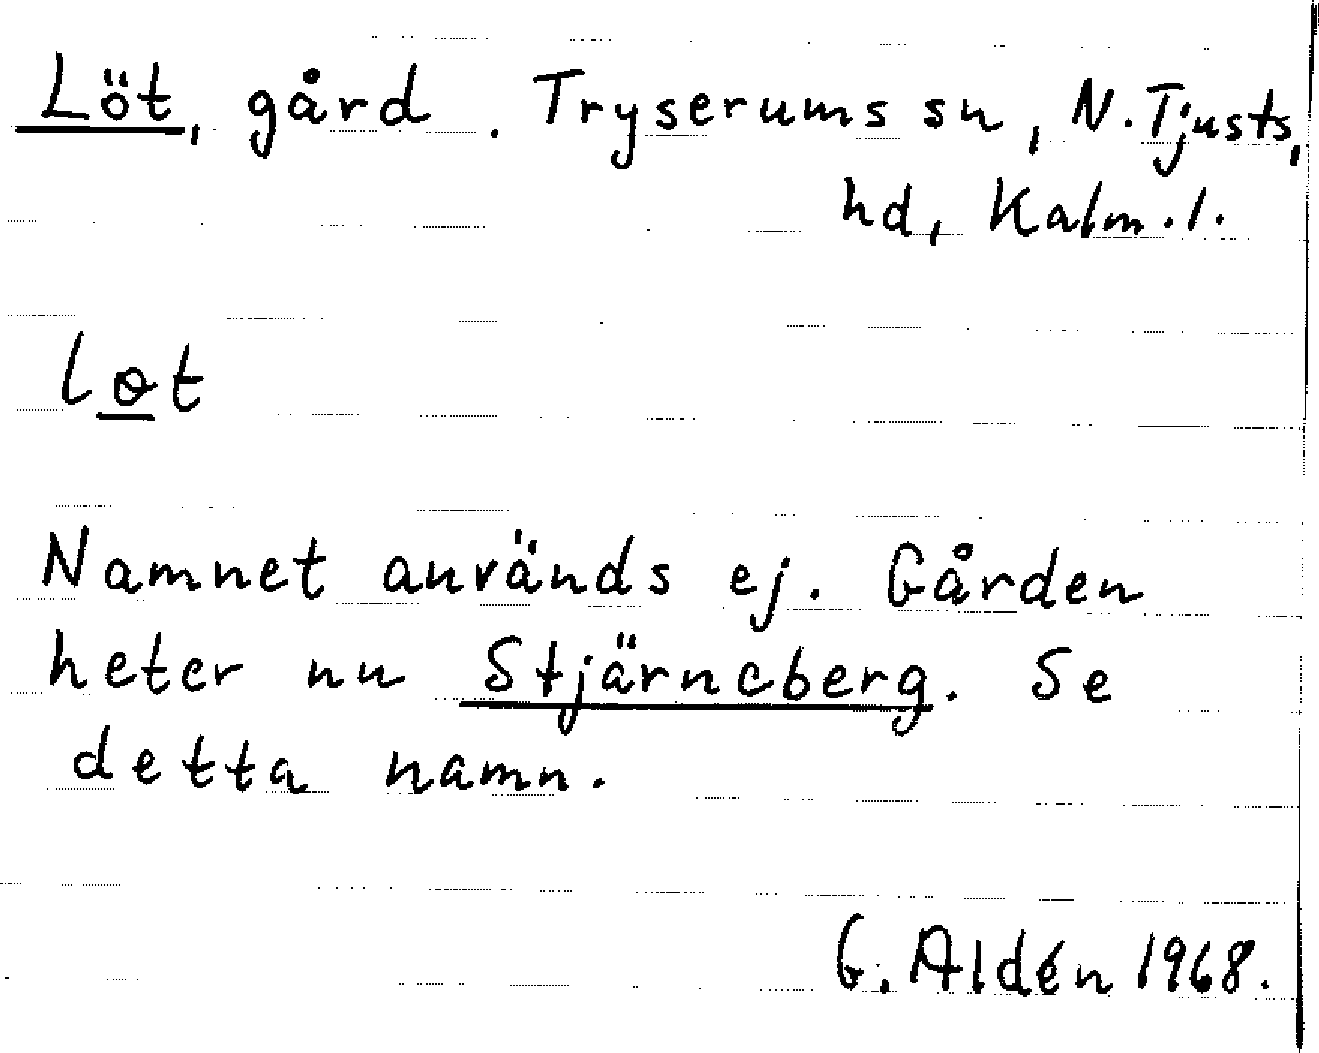 Löt, gård. Tryserums sn, N. Tjusts,
hd, Kalm. l.
lɵt
Namnet används ej. Gården
heter nu Stjärneberg. Se
detta namn.
G. Aldén 1968.